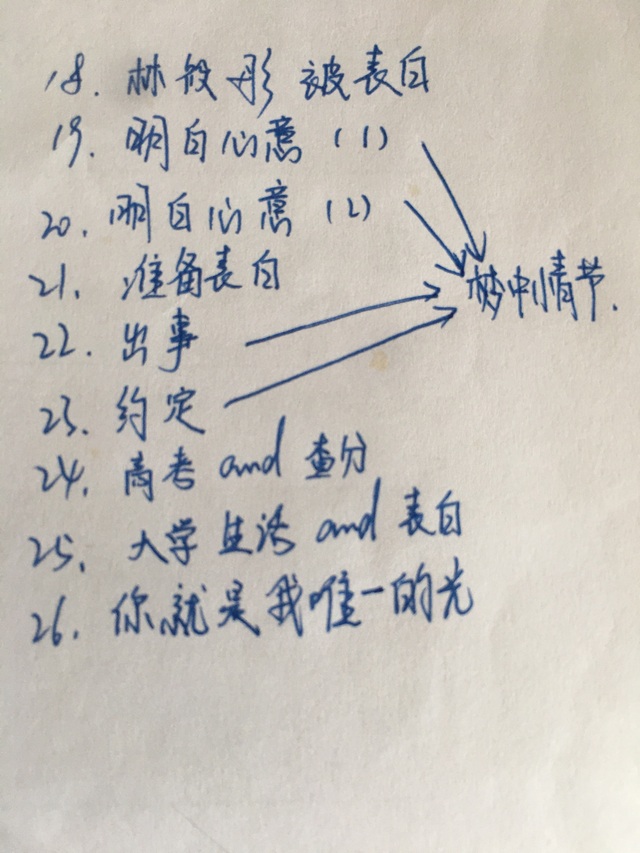 18. 林筱彤 被表白
19. 明白心意 (1)
20. 明白心意 (2)
21. 准备表白
梦中情节.
22. 出事
23. 约定
24. 高考 and 查分
25. 大学生活 and 表白
26. 你就是我唯一的光